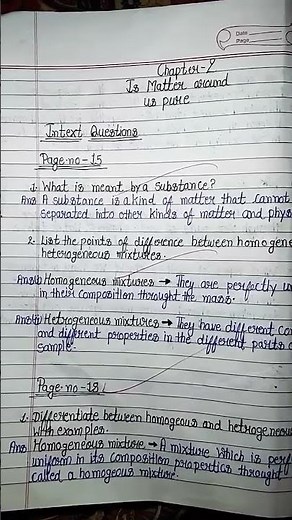 Date
Page
Chapter-2
Is Matter around
us pure
Intext Questions
Page no-15
1. What is meant by a substance?
Ans A substance is a kind of matter that cannot
separated into other kinds of matter and phys
2. List the points of difference between homogene
heterogeneous mixtures.
Ans(i) Homogeneous mixtures → They are perfectly un
in their composition throught the mass.
Ans(ii) Hetrogeneous mixtures → They have different Com
and different properties in the different parts o
sample.
Page no-18
1. Differentiate between homogeous and hetrogeneou
with examples.
Ans Homogeneous mixture → A mixture which is perf
uniform in its composition properties throught
called a homogeous mixture.